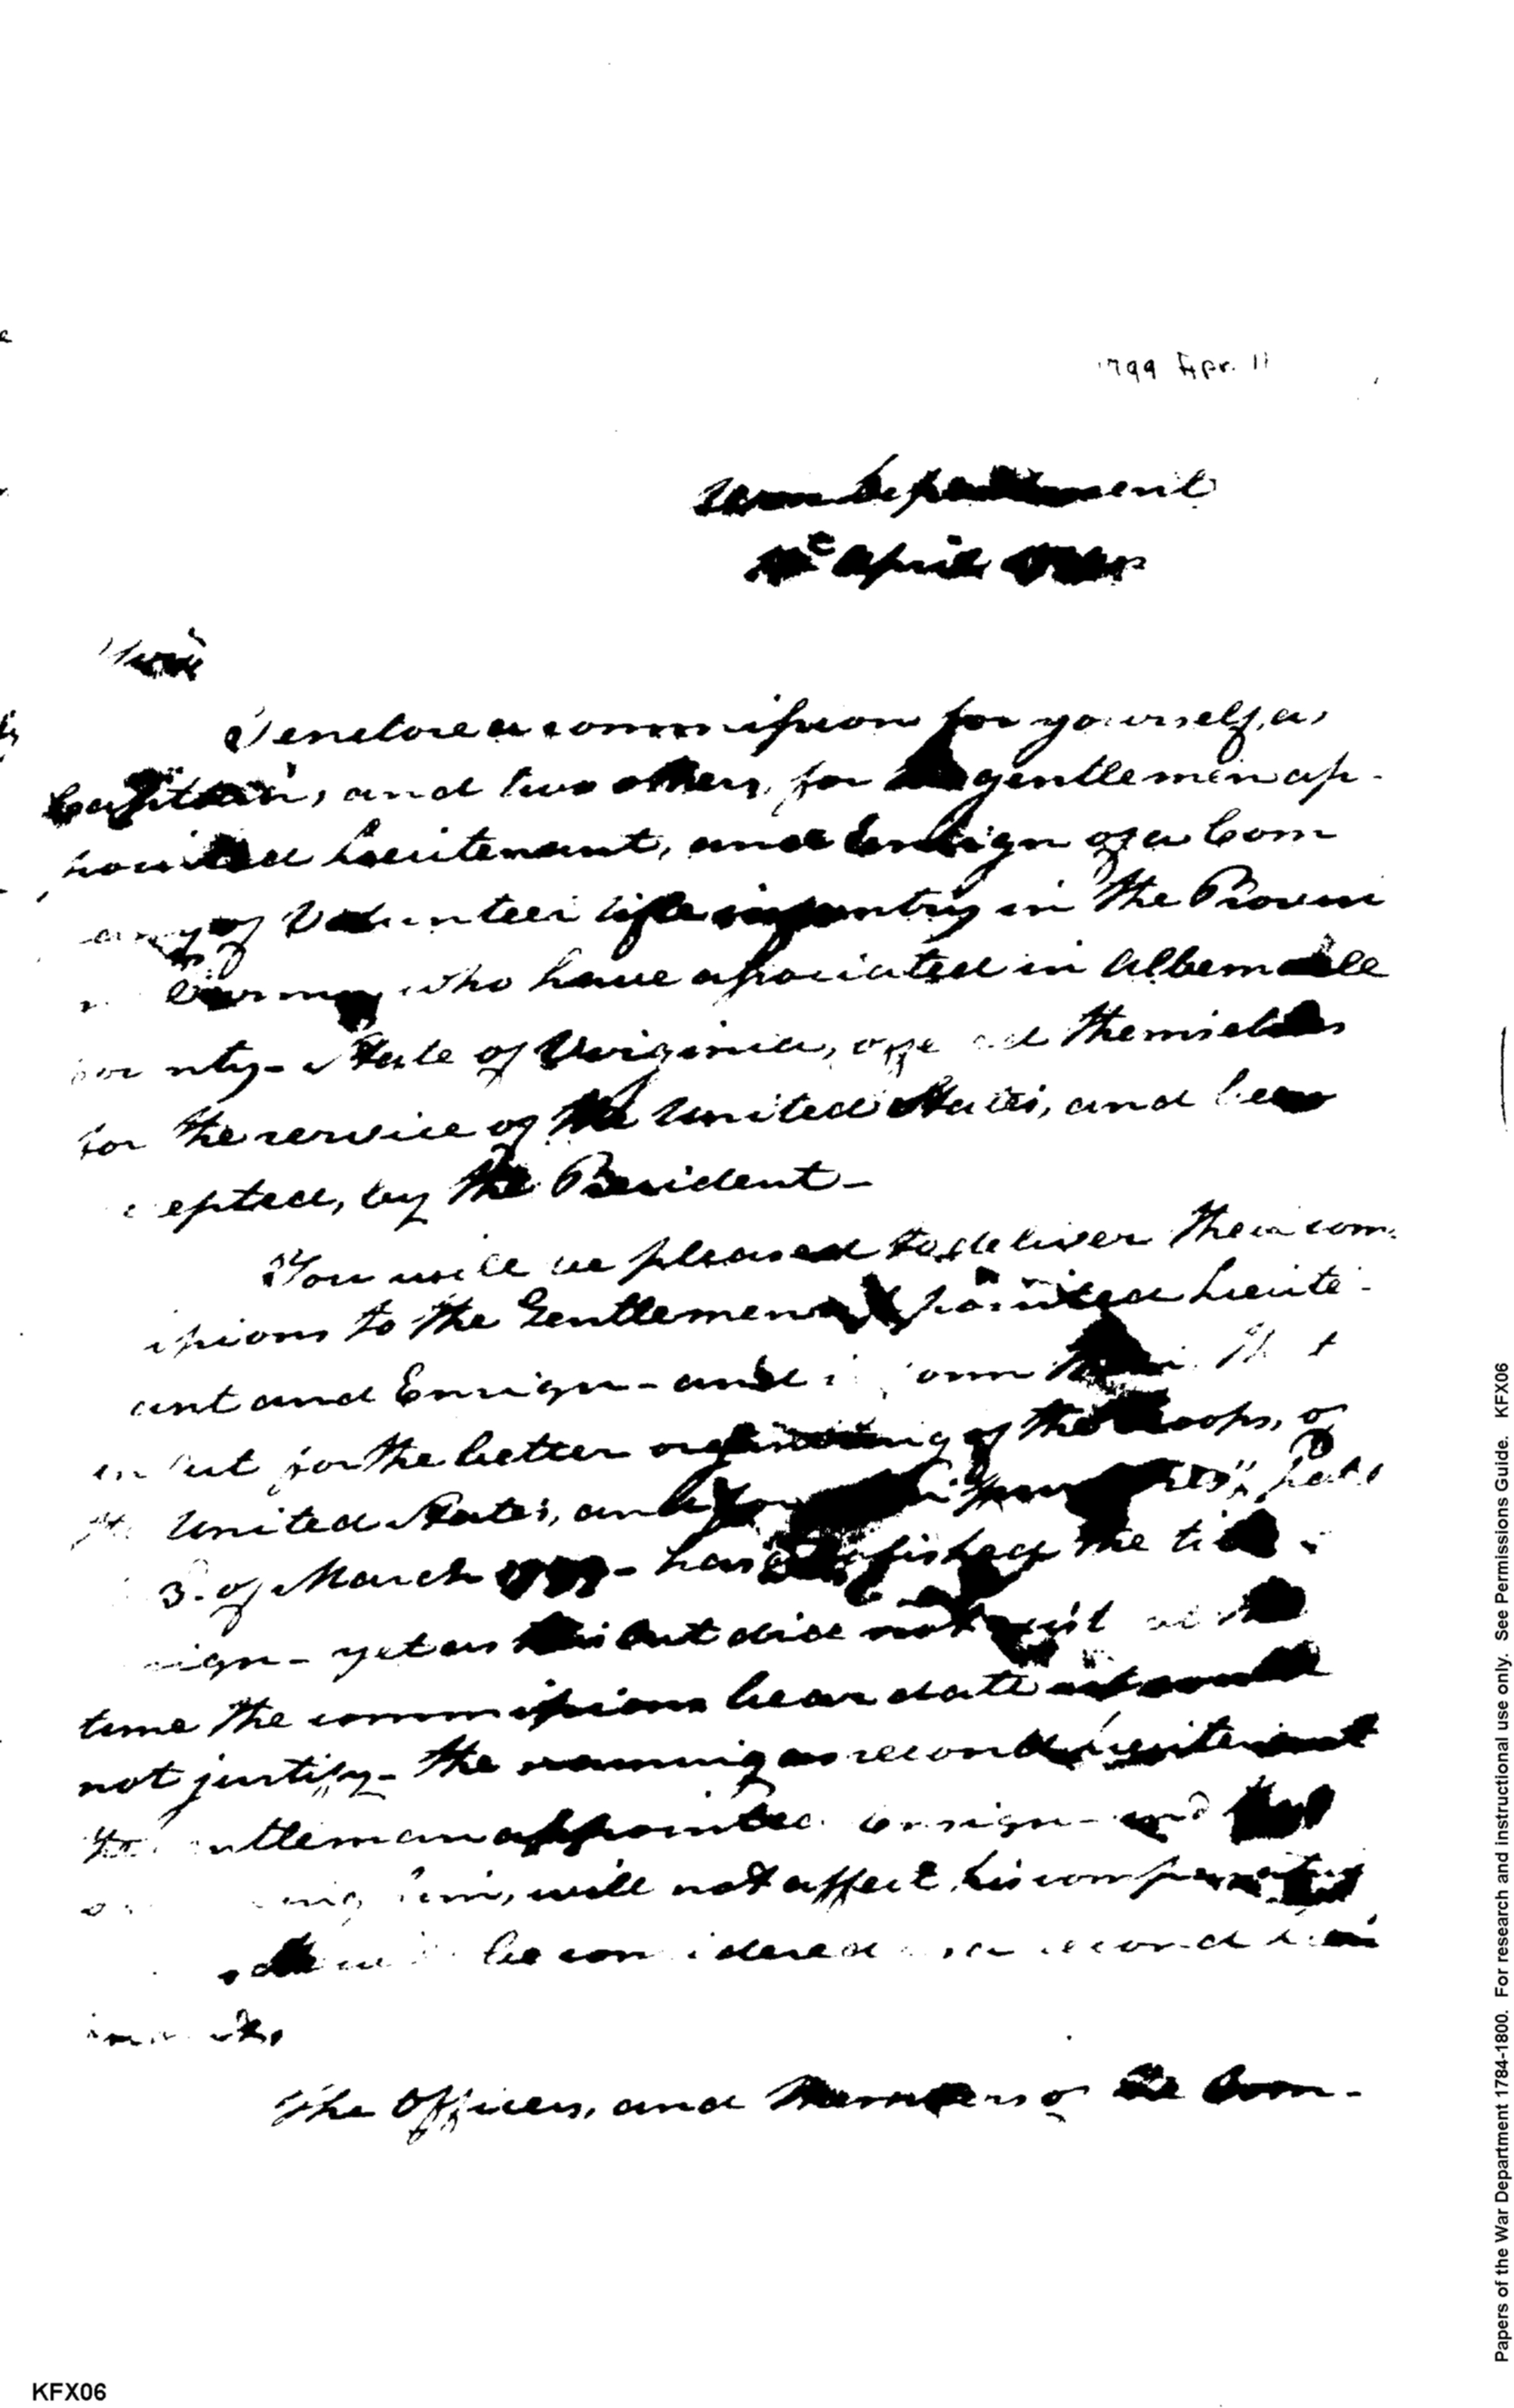 1799 Apr. 11
War Department
April
Sir
I enclose a commission for yourself, as
Captain, and two others, for gentlemen ap-
pointed Lieutenant, and Ensign of a Com
any of Volunteer infantry in the Provisi
Army, who have associated in Albemarle
ounty - State of Virginia, offe ed themselves
for the service of the United States, and been
cepted, by the President -
You will be pleased to deliver their com-
issions to the Gentlemen appointed Lieute-
ant and Ensign - and them that
an act for the better organizing of the troops, of
the United States, and for other purposes" pass
3. of March 1799 - has abolished the title
sign - yet as this act did not exist at the
time the commissions bear date it could
not justify - the naming as second Lieutenant
the ntleman appointed Ensign - and
ing him, will not affect his
be considered as a second
The Officers, and Members of the Com-
Papers of the War Department 1784-1800. For research and instructional use only. See Permissions Guide. KFX06
KFX06